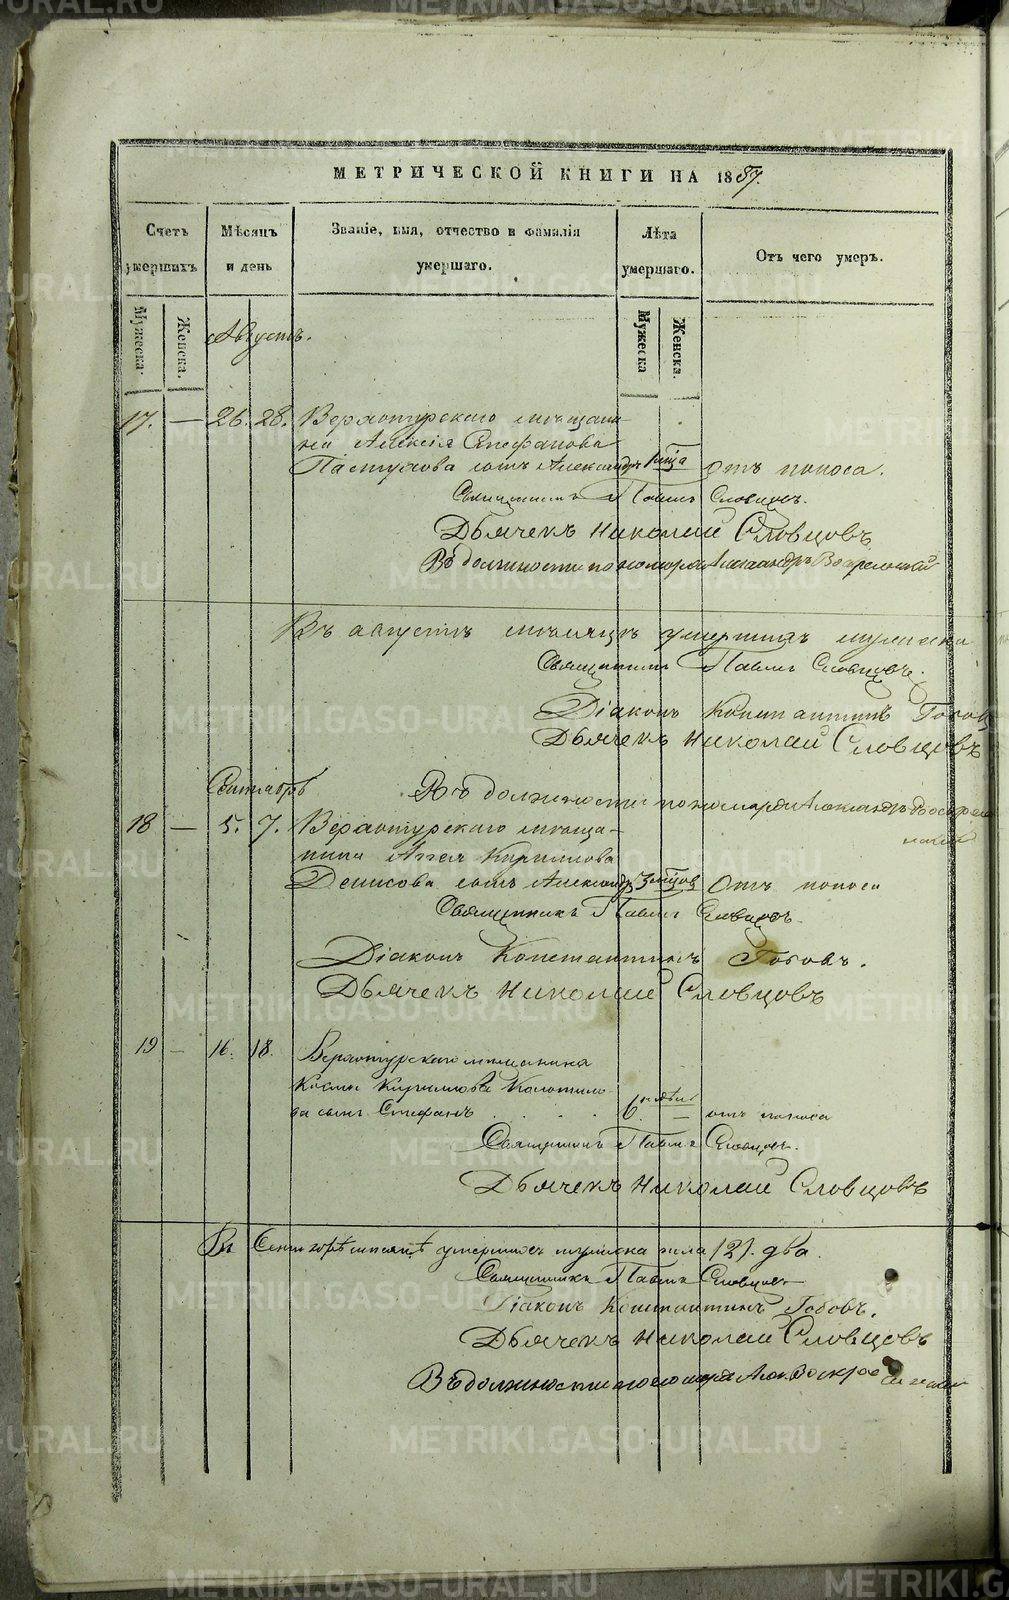 МЕТРИЧЕСКОЙ КНИГИ НА 1857.
Счетъ умершихъ
Мѣсяцъ и день
Званіе, имя, отчество и фамилія умершаго.
Лѣта умершаго.
Отъ чего умеръ.
Мужеска.
Женска.
Мужеска
Женска.
Августъ.
17. — 26. 28. Верхотурскаго мѣщани-
на Алексія Стефанова
Пастухова сынъ Александръ 1 мѣсца отъ поноса.
Священникъ Павелъ Словцовъ.
Дьячекъ Николай Словцовъ
Въ должности пономаря Александръ Воскресенскій
Въ августѣ мѣсяцѣ умершихъ мужеска
Священникъ Павелъ Словцовъ.
Діаконъ Константинъ
Дьячекъ Николай Словцовъ
Сентябрь
Въ должности пономаря Александръ Воскресенскій
18 — 5. 7. Верхотурскаго мѣща-
нина Кириллова
Денисова сынъ Александръ 3 мѣсцов Отъ поноса
Священникъ Павелъ Словцовъ.
Діаконъ Константинъ Гобовъ.
Дьячекъ Николай Словцовъ
19 — 16. 18. Верхотурскаго мѣщанина
Козмы Кириллова
сынъ Стефанъ . . . . 6. недѣль — отъ поноса
Священникъ Павелъ Словцовъ.
Дьячекъ Николай Словцовъ
Въ Сентябрѣ мѣсяцѣ умершихъ мужеска пола /2/. два.
Священникъ Павелъ Словцовъ
Діаконъ Константинъ Гобовъ.
Дьячекъ Николай Словцовъ
Въ должности пономаря Алек. Воскресенскій
METRIKI.GASO-URAL.RU